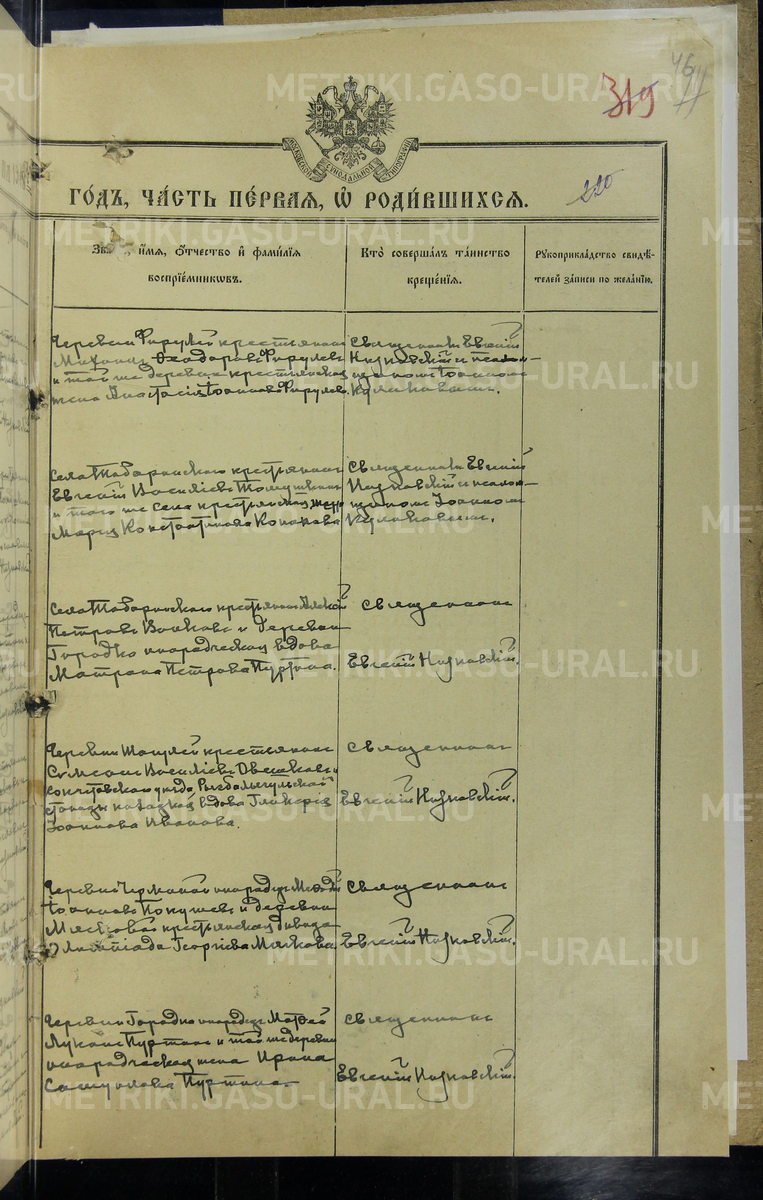 46
319
11
МОСКОВСКОЙ СѴНОДАЛЬНОЙ ТИПОГРАФІИ
ГО́ДЪ, ЧА́СТЬ ПЕ́РВАЯ, Ѡ҆ РОДИ́ВШИХСЯ.
220
И҆́МЯ, Ѻ҆́ТЧЕСТВО И҆ ФАМИ́ЛІЯ
ВОСПРІЕ́МНИКѠВЪ.
КТО̀ СОВЕРША́ЛЪ ТА́ИНСТВО
КРЕЩЕ́НІЯ.
РУКОПРИКЛА́ДСТВО СВИДѢ́-
ТЕЛЕЙ ЗА́ПИСИ ПО ЖЕЛА́НІЮ.
Деревни Фирулей крестьянинъ
Михаилъ Ѳеодоровъ Фирулевъ
и той же деревни крестьянская
жена Анастасія Іоаннова Фирулева.
Священникъ Евгеній
Низковскій и псалом-
щикомъ Іоанномъ
Куликовымъ.
Села Таборинскаго крестьянинъ
Евгеній Василіевъ
и того же села крестьянская жена
Марія Константинова
Священникъ Евгеній
Низковскій и псалом-
щикомъ Іоанномъ
Куликовымъ.
Села Таборинскаго крестьянинъ Алексій
Петровъ Волковъ и деревни
Городка инородческая вдова
Матрона Петрова Пуртова.
Священникъ
Евгеній Низковскій.
Деревни крестьянинъ
Сѵмеонъ Василіевъ Овешковъ и
Кокчетавскаго уѣзда,
станицы казачья вдова Гликерія
Іоаннова Иванова.
Священникъ
Евгеній Низковскій.
Деревни инородецъ
Іоанновъ и деревни
Мягковой крестьянская дивица
Олимпіада Георгіева Мягкова
Священникъ
Евгеній Низковскій.
Деревни Городка инородецъ Матѳей
Лукинъ Пуртовъ и той же деревни
инородческая жена Ирина
Самуилова Пуртова.
Священникъ
Евгеній Низковскій.
METRIKI.GASO-URAL.RU